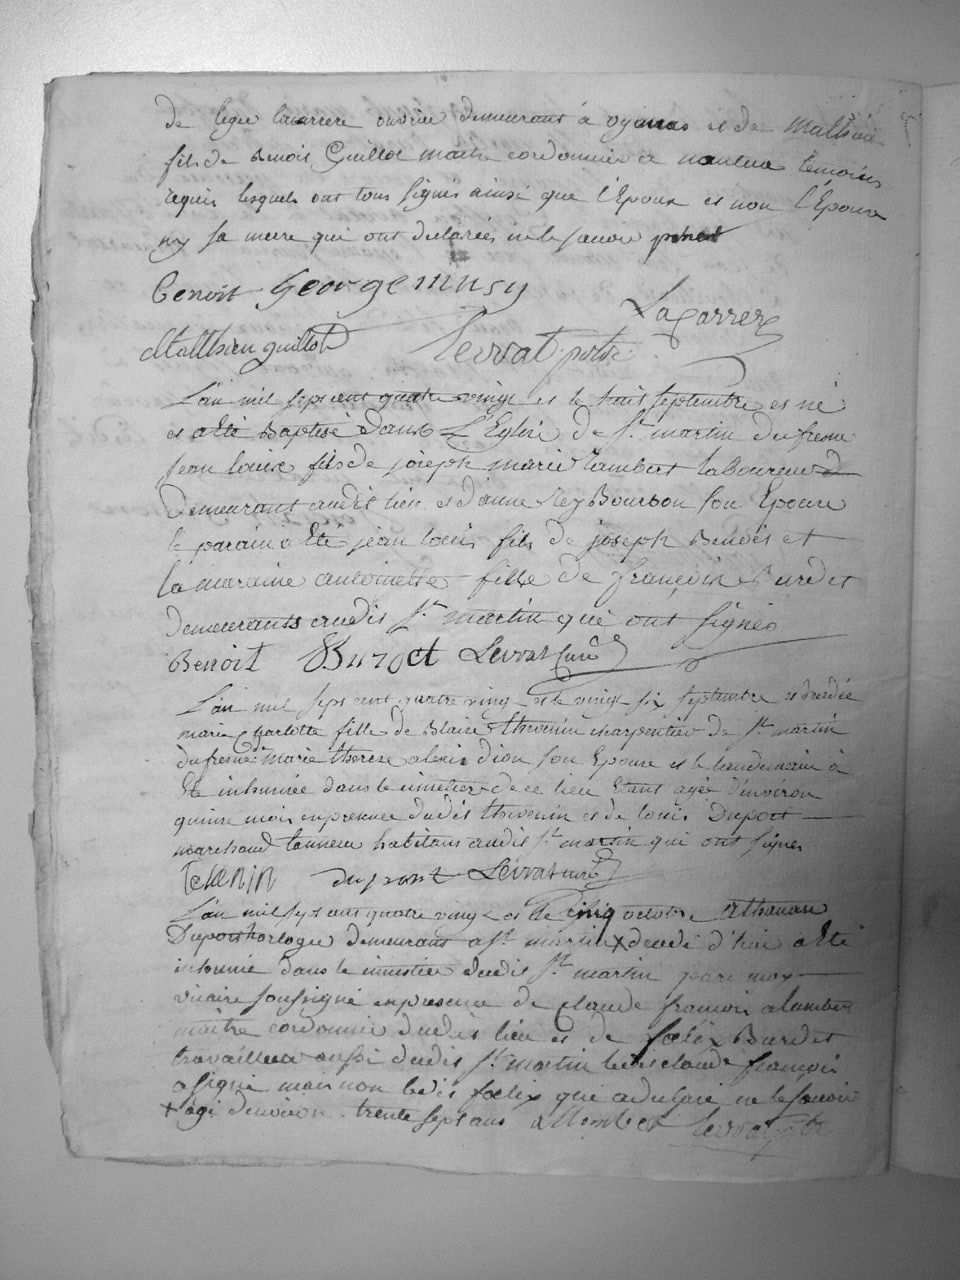 de legu lacarrere ouvrier demeurant à oyonas et de Mathieu
fils de Benoit Guillot maitre cordonnier a nantua temoins
requis lesquels ont tous signés ainsi que l'Epoux et non l'Epouse
ny sa mere qui ont declarées ne le savoir
Benoit George musy
Lacarrere
Matthieu guillot Levrat ptre
L'an mil sept cent quatre vingt et le huit septembre est né
et a été Baptisé dans L'Eglise de St martin du fresne
jean louis fils de joseph marie Lambert laboureur
demeurant audit lieu et d'anne Rey Bourbon son Epouse
le parain a été jean louis fils de joseph Benoit et
la maraine antoinette fille de françois Burdet
demeurants audit St martin qui ont signés
Benoit Burdet Levrat curé
L'an mil sept cent quatre vingt et le vingt six septembre est decedée
marie Charlotte fille de Blaise thevenin charpentier de St martin
du fresne marie therese alexis dion son Epouse et le lendemain a
été inhumée dans le cimetiere de ce lieu Etant agée d'environ
quinze mois en presence dudit thevenin et de louis Duport
marchand tanneur habitans audit St martin qui ont signés
Tevenin duport Levrat curé
L'an mil sept cent quatre vingt et le cinq octobre Athanase
Duport horloger demeurant a St martin x decedé d'hier a été
inhumé dans le cimetiere dudit St martin par moy
vicaire soussigné en presence de claude françois alombert
maitre cordonnier dudit lieu et de foelix Burdet
travailleur aussi dudit St martin ledit claude françois
a signé mais non ledit foelix qui a declaré ne le savoir
x agé d'environ trente sept ans allombert Levrat ptre